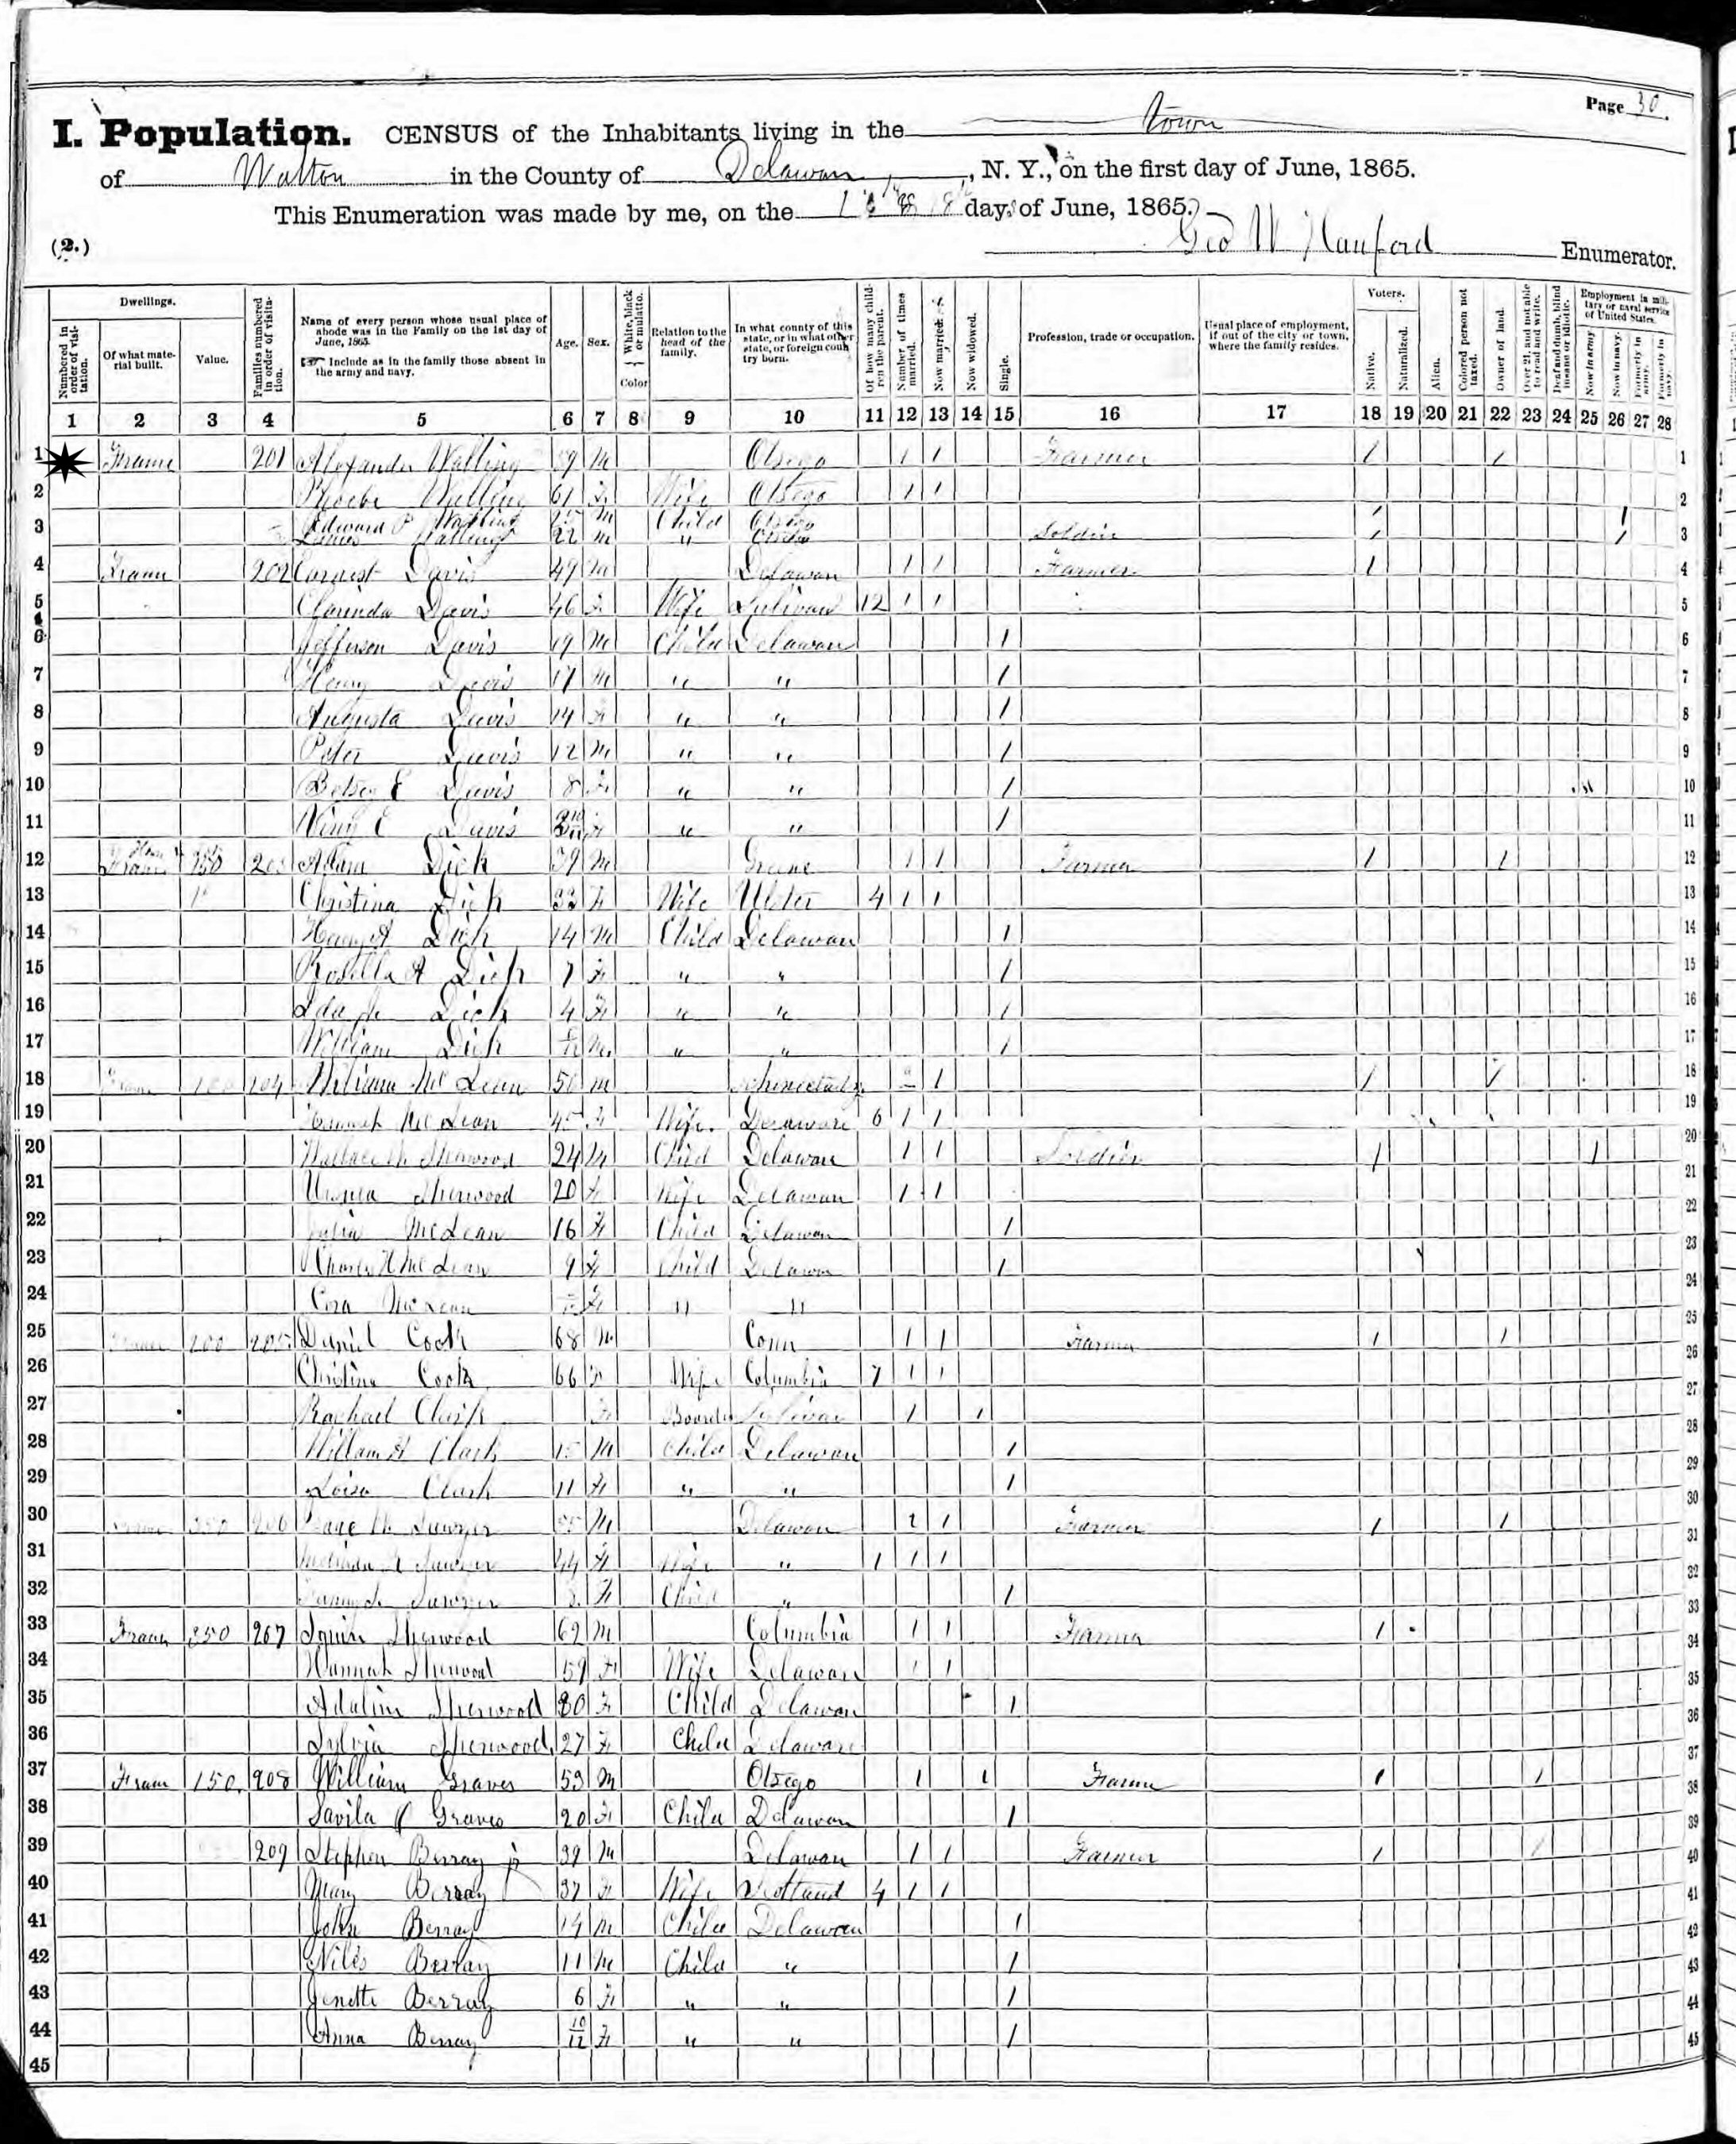 Page 30.
I. Population. CENSUS of the Inhabitants living in the town
of Walton in the County of Delaware, N. Y., on the first day of June, 1865.
This Enumeration was made by me, on the days of June, 1865.
(2.) Geo W Hanford Enumerator.
Dwellings. Voters. Employment in military or naval service of United States.
Numbered in order of visitation. Of what material built. Value. Families numbered in order of visitation. Name of every person whose usual place of abode was in the Family on the 1st day of June, 1865. Include as in the family those absent in the army and navy. Age. Sex. White, black or mulatto. Color Relation to the head of the family. In what county of this state, or in what other state, or foreign country born. Of how many children the parent. Number of times married. Now married. Now widowed. Single. Profession, trade or occupation. Usual place of employment, if out of the city or town, where the family resides. Native. Naturalized. Alien. Colored person not taxed. Owner of land. Over 21, and not able to read and write. Deaf and dumb, blind insane or idiotic. Now in army Now in navy. Formerly in army. Formerly in navy.
1 2 3 4 5 6 7 8 9 10 11 12 13 14 15 16 17 18 19 20 21 22 23 24 25 26 27 28
1 Frame 201 Alexander Walling 59 M Otsego 1 1 Farmer 1 1 1
2 Phoebe Walling 61 F Wife Otsego 1 1 2
3 Edward P Walling 25 M Child Otsego 1 1
Walling 22 M " Otsego Soldier 1 1 3
4 Frame 202 Davis 49 M Delawar 1 1 Farmer 1 4
5 Clarinda Davis 46 F Wife Sulivan 12 1 1 5
6 Jefferson Davis 19 M Child Delawar 1 6
7 Henry Davis 17 M " " 1 7
8 Augusta Davis 14 F " " 1 8
9 Peter Davis 12 M " " 1 9
10 Betsey E Davis 8 F " " 1 10
11 E Davis F " " 1 11
12 Frame 203 Adam Dick 39 M Greene 1 1 Farmer 1 1 12
13 Christina Dick 33 F Wife Ulster 4 1 1 13
14 Henry A Dick 14 M Child Delawar 1 14
15 Rosilla A Dick 7 F " " 1 15
16 Ida Dick 4 F " " 1 16
17 William Dick M " " 1 17
18 William McLean M Schenectady 1 1 1 18
19 McLean 45 F Wife Delaware 6 1 1 19
20 Wallace M Sherwood 24 M Child Delawar 1 1 Soldier 1 1 20
21 Sherwood 20 F Wife Delawar 1 1 21
22 Julia McLean 16 F Child Delawar 1 22
23 Charles H McLean 9 Child Delawar 1 23
24 Cora McLean F " " 24
25 Frame 200 205 Daniel Cook 68 M Conn 1 1 Farmer 1 1 25
26 Christina Cook 66 F Wife Columbia 7 1 1 26
27 Rachael Clark F Boarder Sulivan 1 1 27
28 William H Clark 15 M Child Delawar 1 28
29 Loisa Clark 11 F " " 1 29
30 Frame 350 206 Sawyer M Delawar 2 1 Farmer 1 1 30
31 Sawyer 44 F Wife " 1 1 1 31
32 Sawyer F Child " 1 32
33 Frame 350 207 Squire Sherwood 62 M Columbia 1 1 Farmer 1 33
34 Hannah Sherwood 59 F Wife Delawar 1 1 34
35 Adaline Sherwood 30 F Child Delawar 1 35
36 Sylvia Sherwood 27 F Child Delaware 36
37 Frame 150 208 William Graves 53 M Otsego 1 1 Farmer 1 1 37
38 Savila Graves 20 F Child Delawar 1 38
39 209 Stephen Berray jr 39 M Delawar 1 1 Farmer 1 1 39
40 Mary Berray 37 F Wife Scotland 4 1 1 40
41 John Berray 14 M Child Delawar 1 41
42 Niles Berray 11 M Child " 1 42
43 Jenette Berray 6 F " " 1 43
44 Anna Berray 10/12 F " " 1 44
45 45